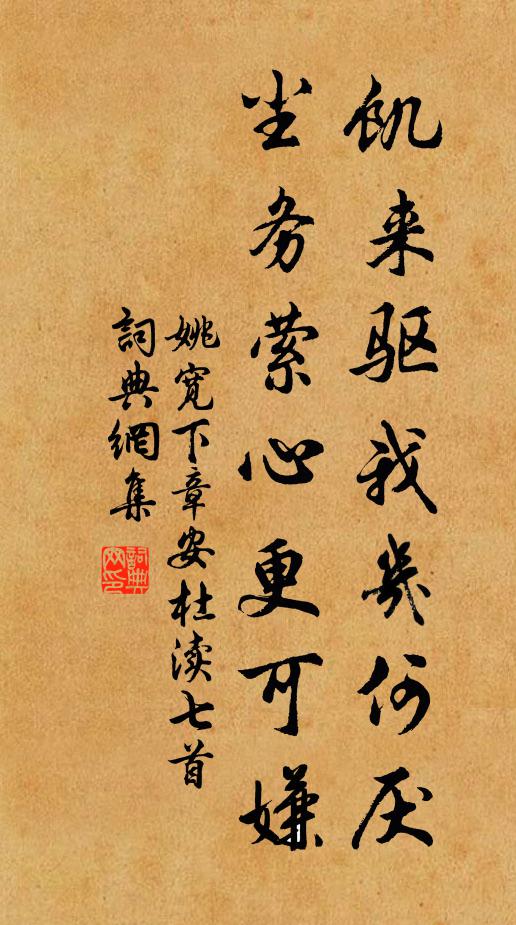 飢来驱我幾何厌
尘务萦心更可嫌
姚寬下章安杜渎七首
詞典網集
詞典網印